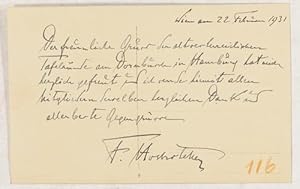 Wien am 22 Februar 1931
Der freundliche Gruss der altverehrten
Tafelrunde am Dornbusch in Hamburg hat mich
herzlich gefreut und ich sende hiemit allen
Mitgliedern derselben herzlichen Dank und
allerbeste Gegengrüsse
F.
116